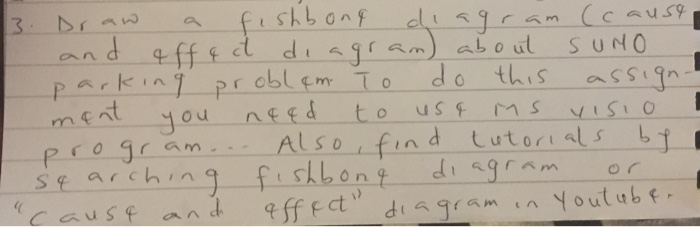 3. Draw a fishbone diagram (cause
and effect diagram) about SUNO
parking problem To do this assign-
ment you need to use ms visio
program... Also, find tutorials by
searching fishbone diagram or
"cause and effect" diagram in Youtube.